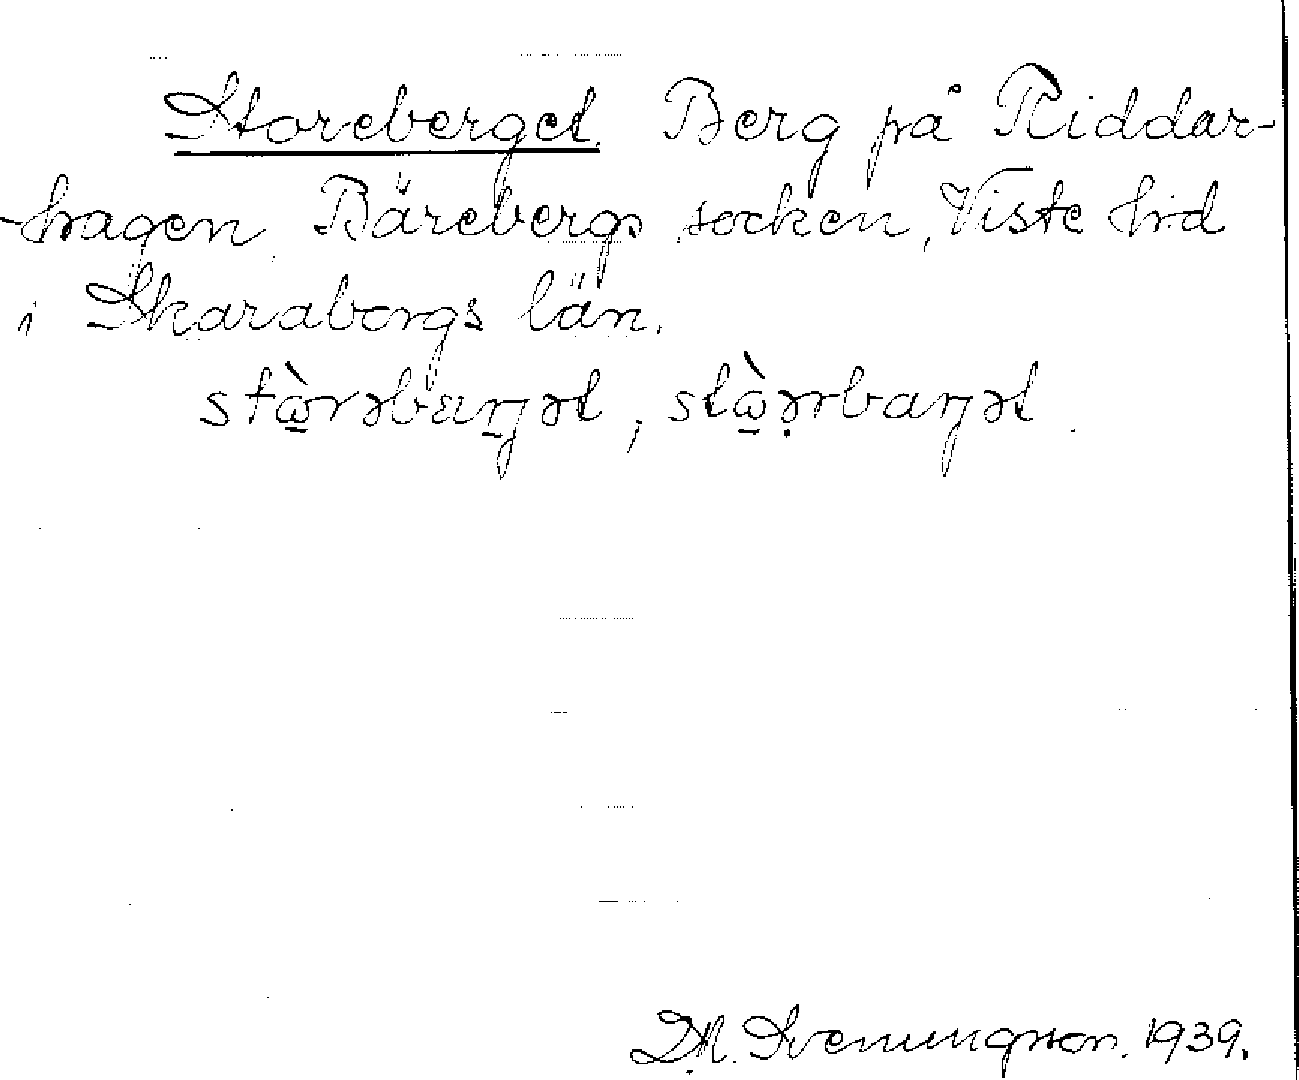 Storeberget. Berg på Riddar-
-hagen Bärebergs socken, Viste hd
i Skaraborgs län.
stὼrəbæŋət, stὼərbaŋət.
D.M. Svenungsson. 1939.